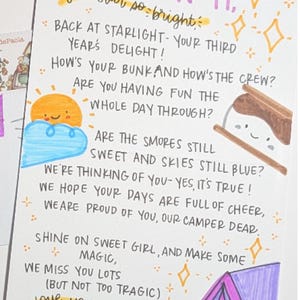 so bright!
BACK AT STARLIGHT - YOUR THIRD
YEAR'S DELIGHT!
HOW'S YOUR BUNK AND HOW'S THE CREW?
ARE YOU HAVING FUN THE
WHOLE DAY THROUGH?
ARE THE SMORES STILL
SWEET AND SKIES STILL BLUE?
WE'RE THINKING OF YOU - YES, IT'S TRUE!
WE HOPE YOUR DAYS ARE FULL OF CHEER,
WE ARE PROUD OF YOU, OUR CAMPER DEAR.
SHINE ON SWEET GIRL, AND MAKE SOME
MAGIC,
WE MISS YOU LOTS
(BUT NOT TOO TRAGIC)